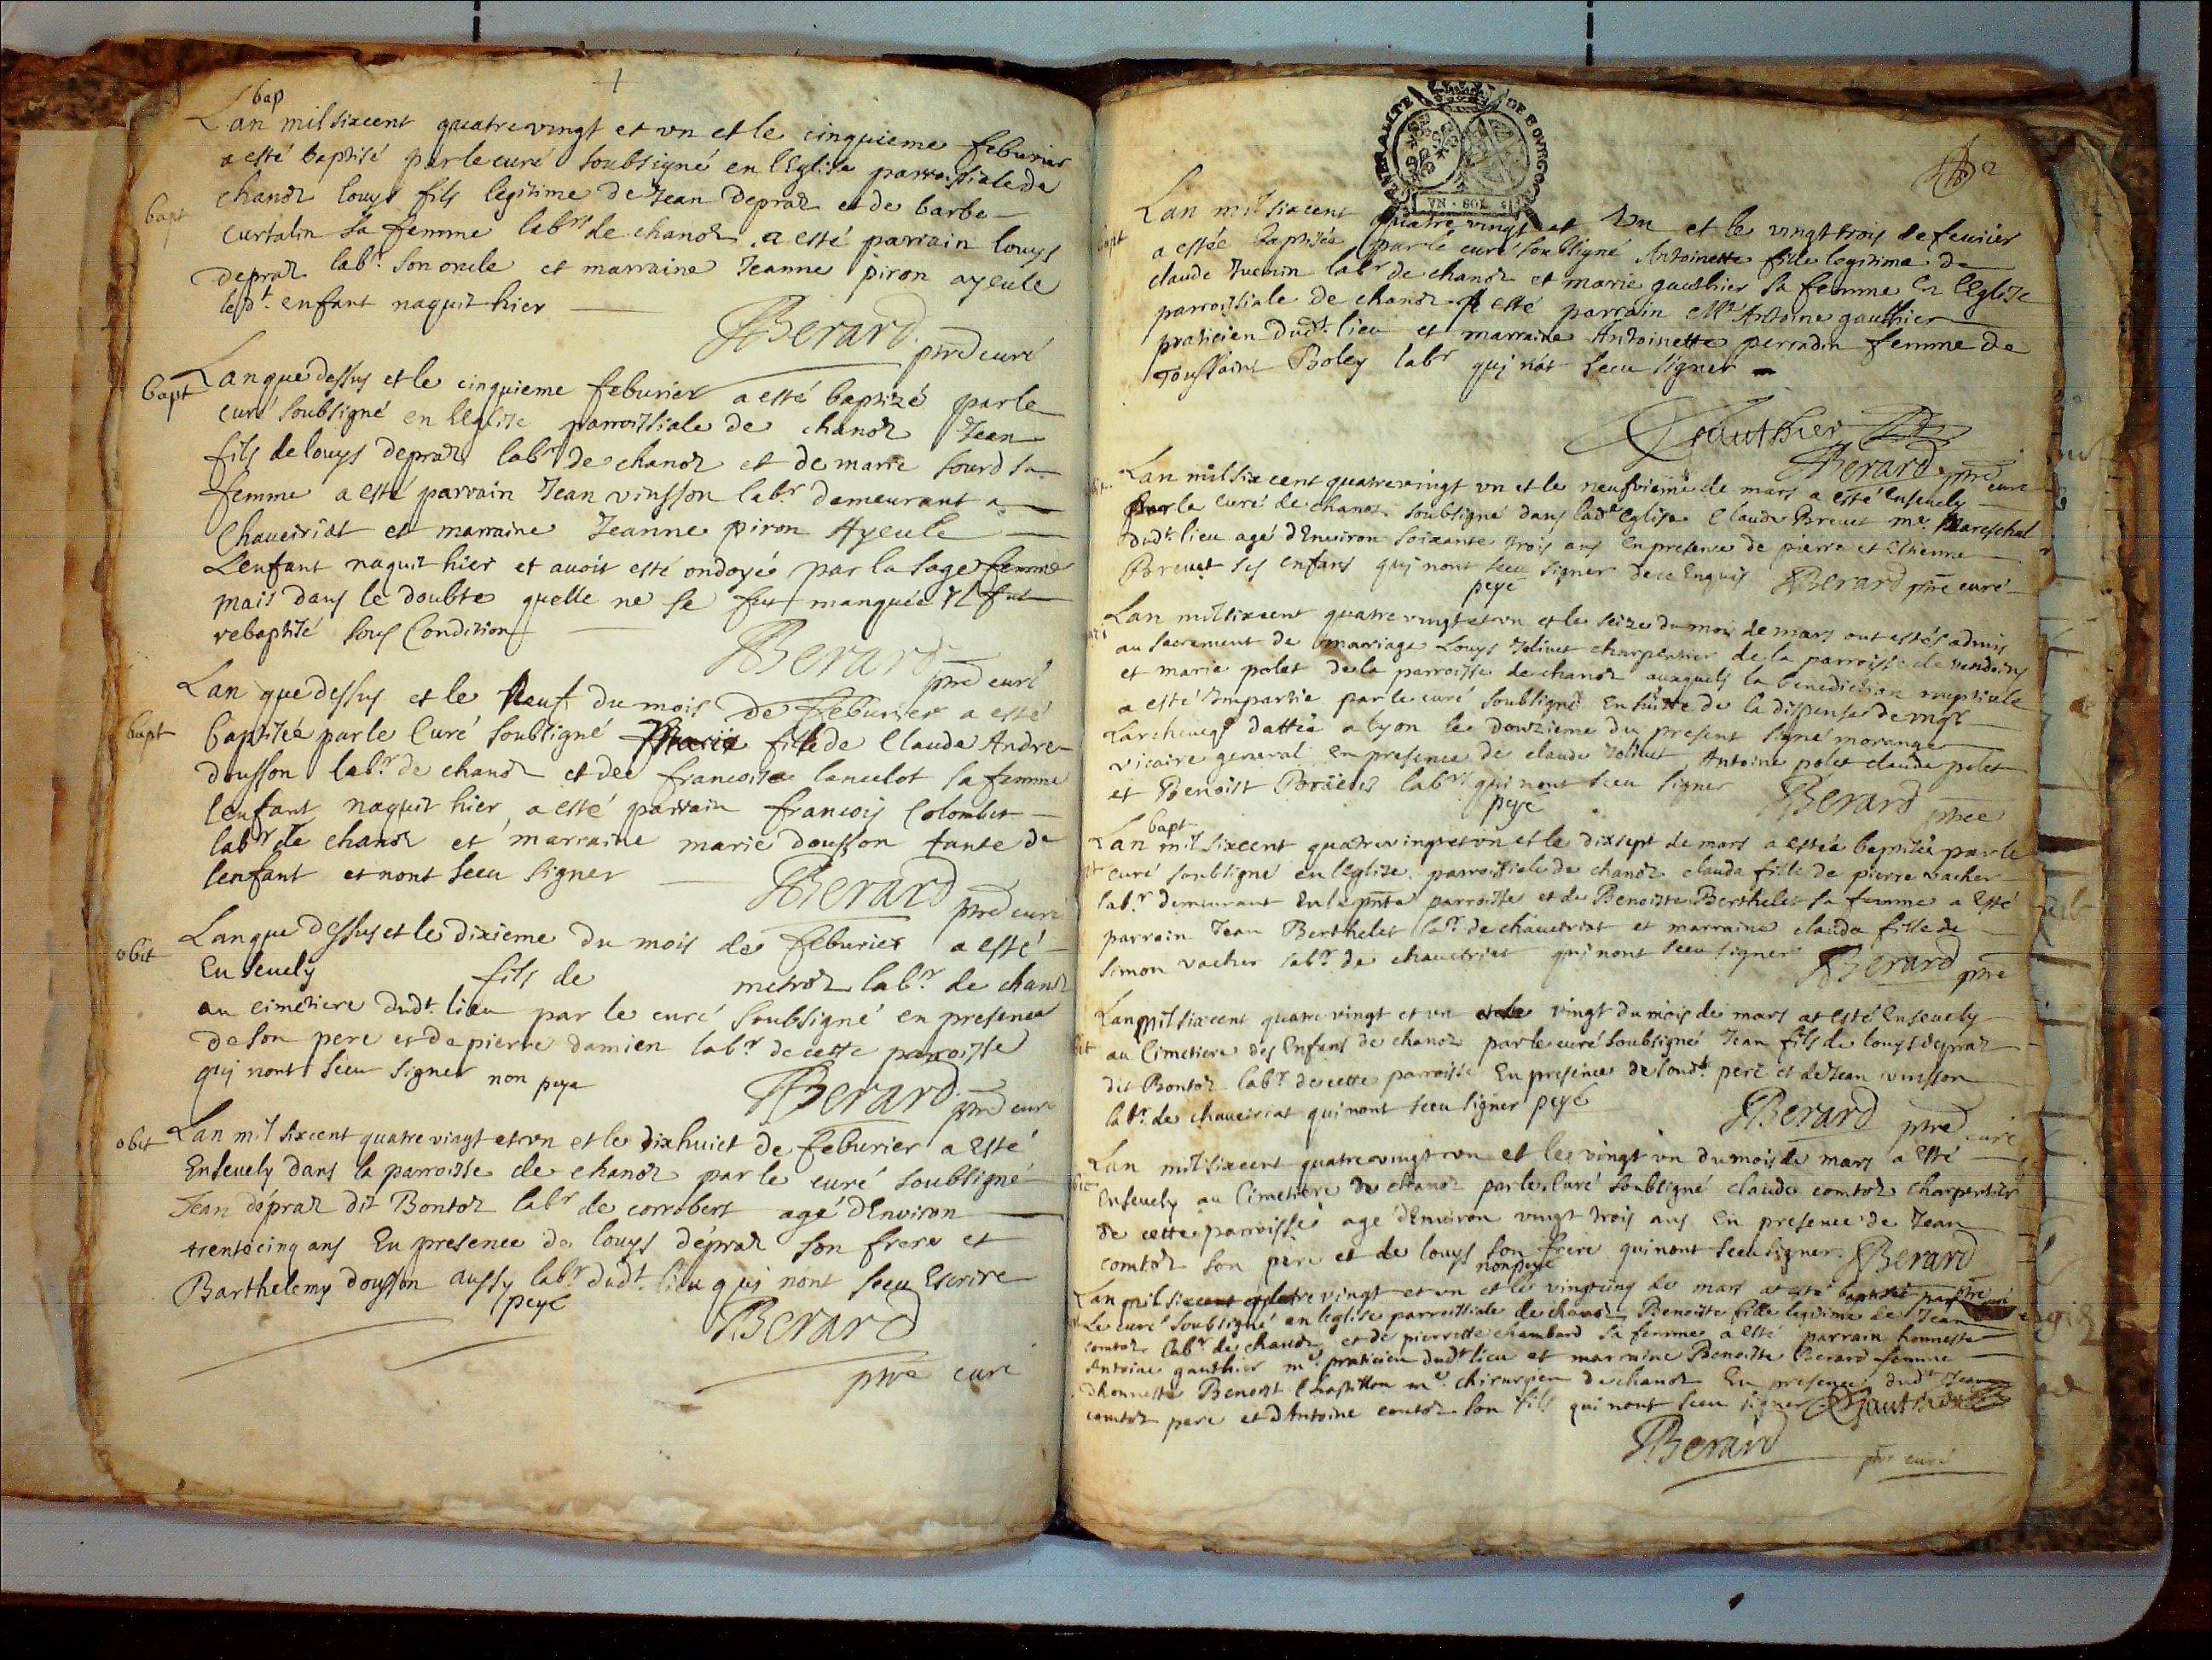 bap
Lan mil sixcent quatrevingt et vn et le cinquieme feburier
a esté baptisé par le curé soubsigné en lEglise parroissiale de
bapt
chanoz louys fils legitime de Jean depraz et de barbe
curtalin sa femme labrs de chanoz. a esté parrain louys
depraz labr. son oncle et marraine Jeanne piron ayeule
led.t enfant naquit hier
Berard ptre curé
bapt
Lan que dessus et le cinquieme feburier a esté baptizé par le
curé soubsigné en lEglise parroissiale de chanoz Jean
fils de louys depraz labr de chanoz et de marie sourd sa
femme a esté parrain Jean vinsson labr demeurant a
Chaueiriat et marraine Jeanne piron Ayeule
Lenfant naquit hier et auoit esté ondoyé par la sage femme
mais dans le doubte quelle ne se fut manquée Il fut
rebaptisé sous Condition
Berard ptre curé
Lan que dessus et le Neuf du mois de feburier a esté
bapt
baptisée par le Curé soubsigné Marie fille de Claude Andre
dousson labr. de chanoz et de francoise lancelot sa femme
lenfant naquit hier a esté parrain francois Colombet
labr de chanoz et marraine marie dousson tante de
lenfant et nont sceu signer
Berard ptre curé
obit
Lan que dessus et le dixieme du mois de feburier a esté
Enseuely fils de metroz labr. de chanoz
au cimetiere dudt. lieu par le curé soubsigné en presence
de son pere et de pierre damien labr. de cette parroisse
qui nont sceu signer non peye
Berard ptre curé
obit
Lan mil sixcent quatre vingt et vn et le dixhuict de feburier a Esté
Enseuely dans la parroisse de chanoz par le curé soubsigné
Jean dépraz dit Bontoz labr de corrobert agé dEnviron
trentecinq ans En presence de louys dépraz son frere et
Barthelemy dousson aussy labr. dudt. lieu qui nont sceu Escrire
peyé
Berard
ptre curé
GENERALITE DE BOURGOGNE
VN SOL
2
Lan mil sixcent quatre vingt et Vn et le vingttrois de feurier
bapt
a estée baptisée par le curé soubsigné Antoinette fille legitime de
claude Juenin labr de chanoz et marie gauthier sa femme En lEglise
parroissiale de chanoz A esté parrain Mr Antoine gauthier
praticien dudt. lieu et marraine Antoinette perradin femme de
Toussaint Boley labr qui nat sceu signer
Gauthier
Berard ptre curé
Lan mil sixcent quatrevingt vn et le neufvieme de mars a esté Enseuely
Par le Curé de chanoz soubsigné dans lade Eglise Claude Breuet me. Mareschal
dudt. lieu agé dEnviron soixante trois ans En presence de pierre et Estienne
Breuet ses enfans qui nont sceu signer de ce Enquis Berard ptre curé
peyé
Lan mil sixcent quatre vingt et vn et le seize du mois de mars ont estés admis
au sacrement de mariage Louys Joliuet charpentier de la parroisse de vendeins
et marie polet de la parroisse de chanoz auxquels la benediction nuptiale
a esté Impartie par le curé soubsigné En suitte de la dispense de mgr
Larcheuesq dattée a lyon le douzieme du present signé morange
vicaire general En presence de claude Joliuet Antoine polet claude polet
et Benoist labrs qui nont sceu signer Berard ptre
peyé
bapt
Lan mil sixcent quatrevingt et vn et le dixsept de mars a estée baptisée par le
curé soubsigné en lEglize parroissiale de chanoz clauda fille de pierre vacher
labr. demeurant En la pnte parroisse et de Benoiste Berthelet sa femme a Esté
parrain Jean Berthelet labr. de chaueiriat et marraine clauda fille de
simon vacher labr. de chaueiriat qui nont sceu signer Berard ptre
Lan mil sixcent quatre vingt et vn et le vingt du mois de mars at esté Enseuely
au Cimetiere des Enfans de chanoz par le curé soubsigné Jean fils de louys depraz
dit Bontoz labr. de cette parroisse En presence de sondt. peré et de Jean vinsson
labr. de chaueiriat qui nont sceu signer peyé
Berard ptre curé
Lan mil sixcent quatrevingt vn et le vingt vn du mois de mars a Esté
Enseuely au Cimetiere de chanoz par le Curé soubsigné claude comtoz charpentier
de cette parroisse agé dEnviron vingt trois ans En presence de Jean
comtoz son pere et de louys son frere qui nont sceu signer. Berard
non peyé
ptre curé
Lan mil sixcent quatre vingt et vn et le vingtcinq de mars at esté baptisée par
Le curé soubsigné en leglise parroissiale de chanoz Benoiste fille legitime de Jean
comtoz labr. de chanoz, et de pierrette chambard sa femme a Esté parrain honneste
Antoine gauthier me. praticien dudt lieu et marraine Benoiste Berard femme
dhonneste Benoist Chastillon me. chirurgien de chanoz En presence dudt Jean
comtoz pere et dAntoine comtoz son fils qui nont sceu signer Gauthier
Berard
ptre curé